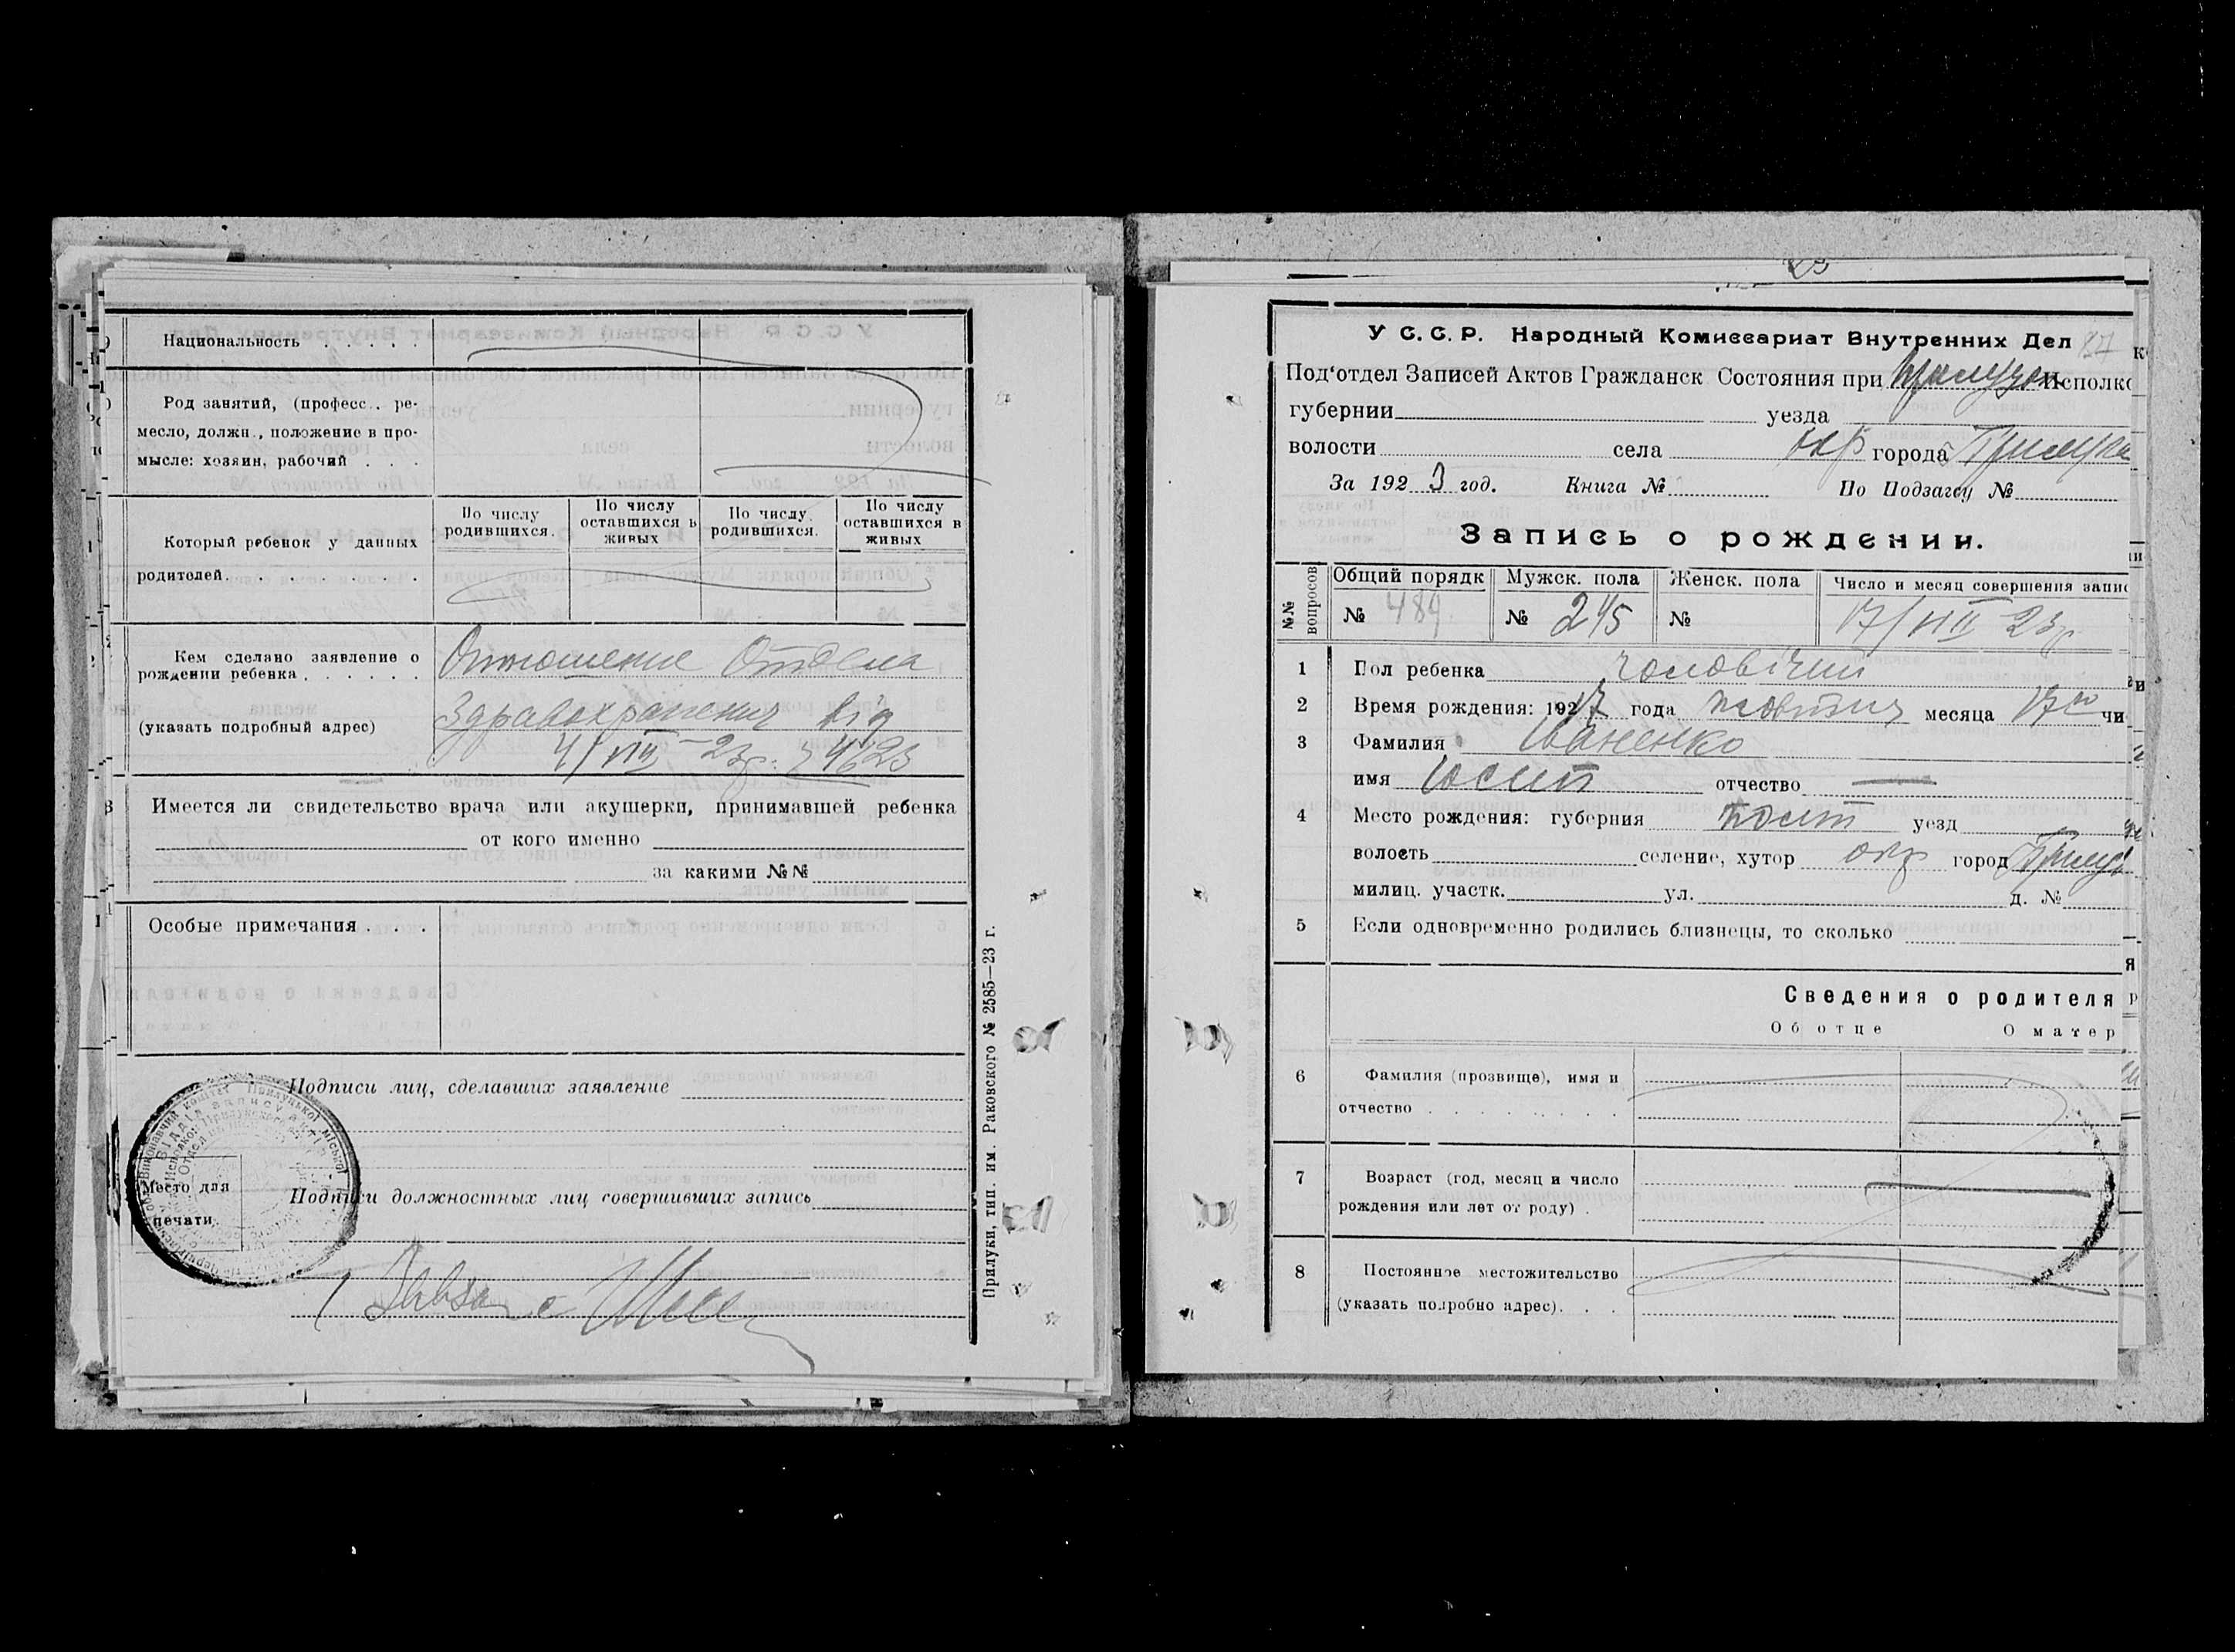 Национальность . . . . .
Род занятий, (професс.. ре-
месло, должн., положение в про-
мысле: хозяин, рабочий . . .
По числу родившихся. По числу оставшихся в живых По числу родившихся. По числу оставшихся в живых
Который ребенок у данных
родителей. . . . . . .
Кем сделано заявление о
рождении ребенка . . . . . .
(указать подробный адрес)
Отношение Отдела
Здравохранения від
4/VIII-23р. 4623
Имеется ли свидетельство врача или акушерки, принимавшей ребенка
от кого именно
за какими №№
Особые примечания . . .
Подписи лиц, сделавших заявление
Место для
печати
Подписи должностных лиц совершивших запись
Прилуки, тип. им. Раковского № 2585—23 г.
У С. С. Р. Народный Комиссариат Внутренних Дел 87
Под'отдел Записей Актов Гражданск Состояния при Исполко
губернии уезда
волости села окр города Прилуки
За 1923 год. Книга № По Подзагсу №
Запись о рождении.
№№ вопросов
Общий порядк Мужск. пола Женск. пола Число и месяц совершения запис
№ 489 № 245 № 17/VIII 23р.
1 Пол ребенка чоловічий
2 Время рождения: 1917 года жовтня месяца 17го чи
3 Фамилия Іваненко
имя Юсип отчество —
4 Место рождения: губерния Полт уезд
волость селение, хутор окр город Прилуц
милиц. участк. ул. д. №
5 Если одновременно родились близнецы, то сколько
Сведения о родителя
Об отце О матер
6 Фамилия (прозвище), имя и
отчество . . . . . . . .
7 Возраст (год, месяц и число
рождения или лет от роду) .
8 Постоянное местожительство
(указать подробно адрес). . . .